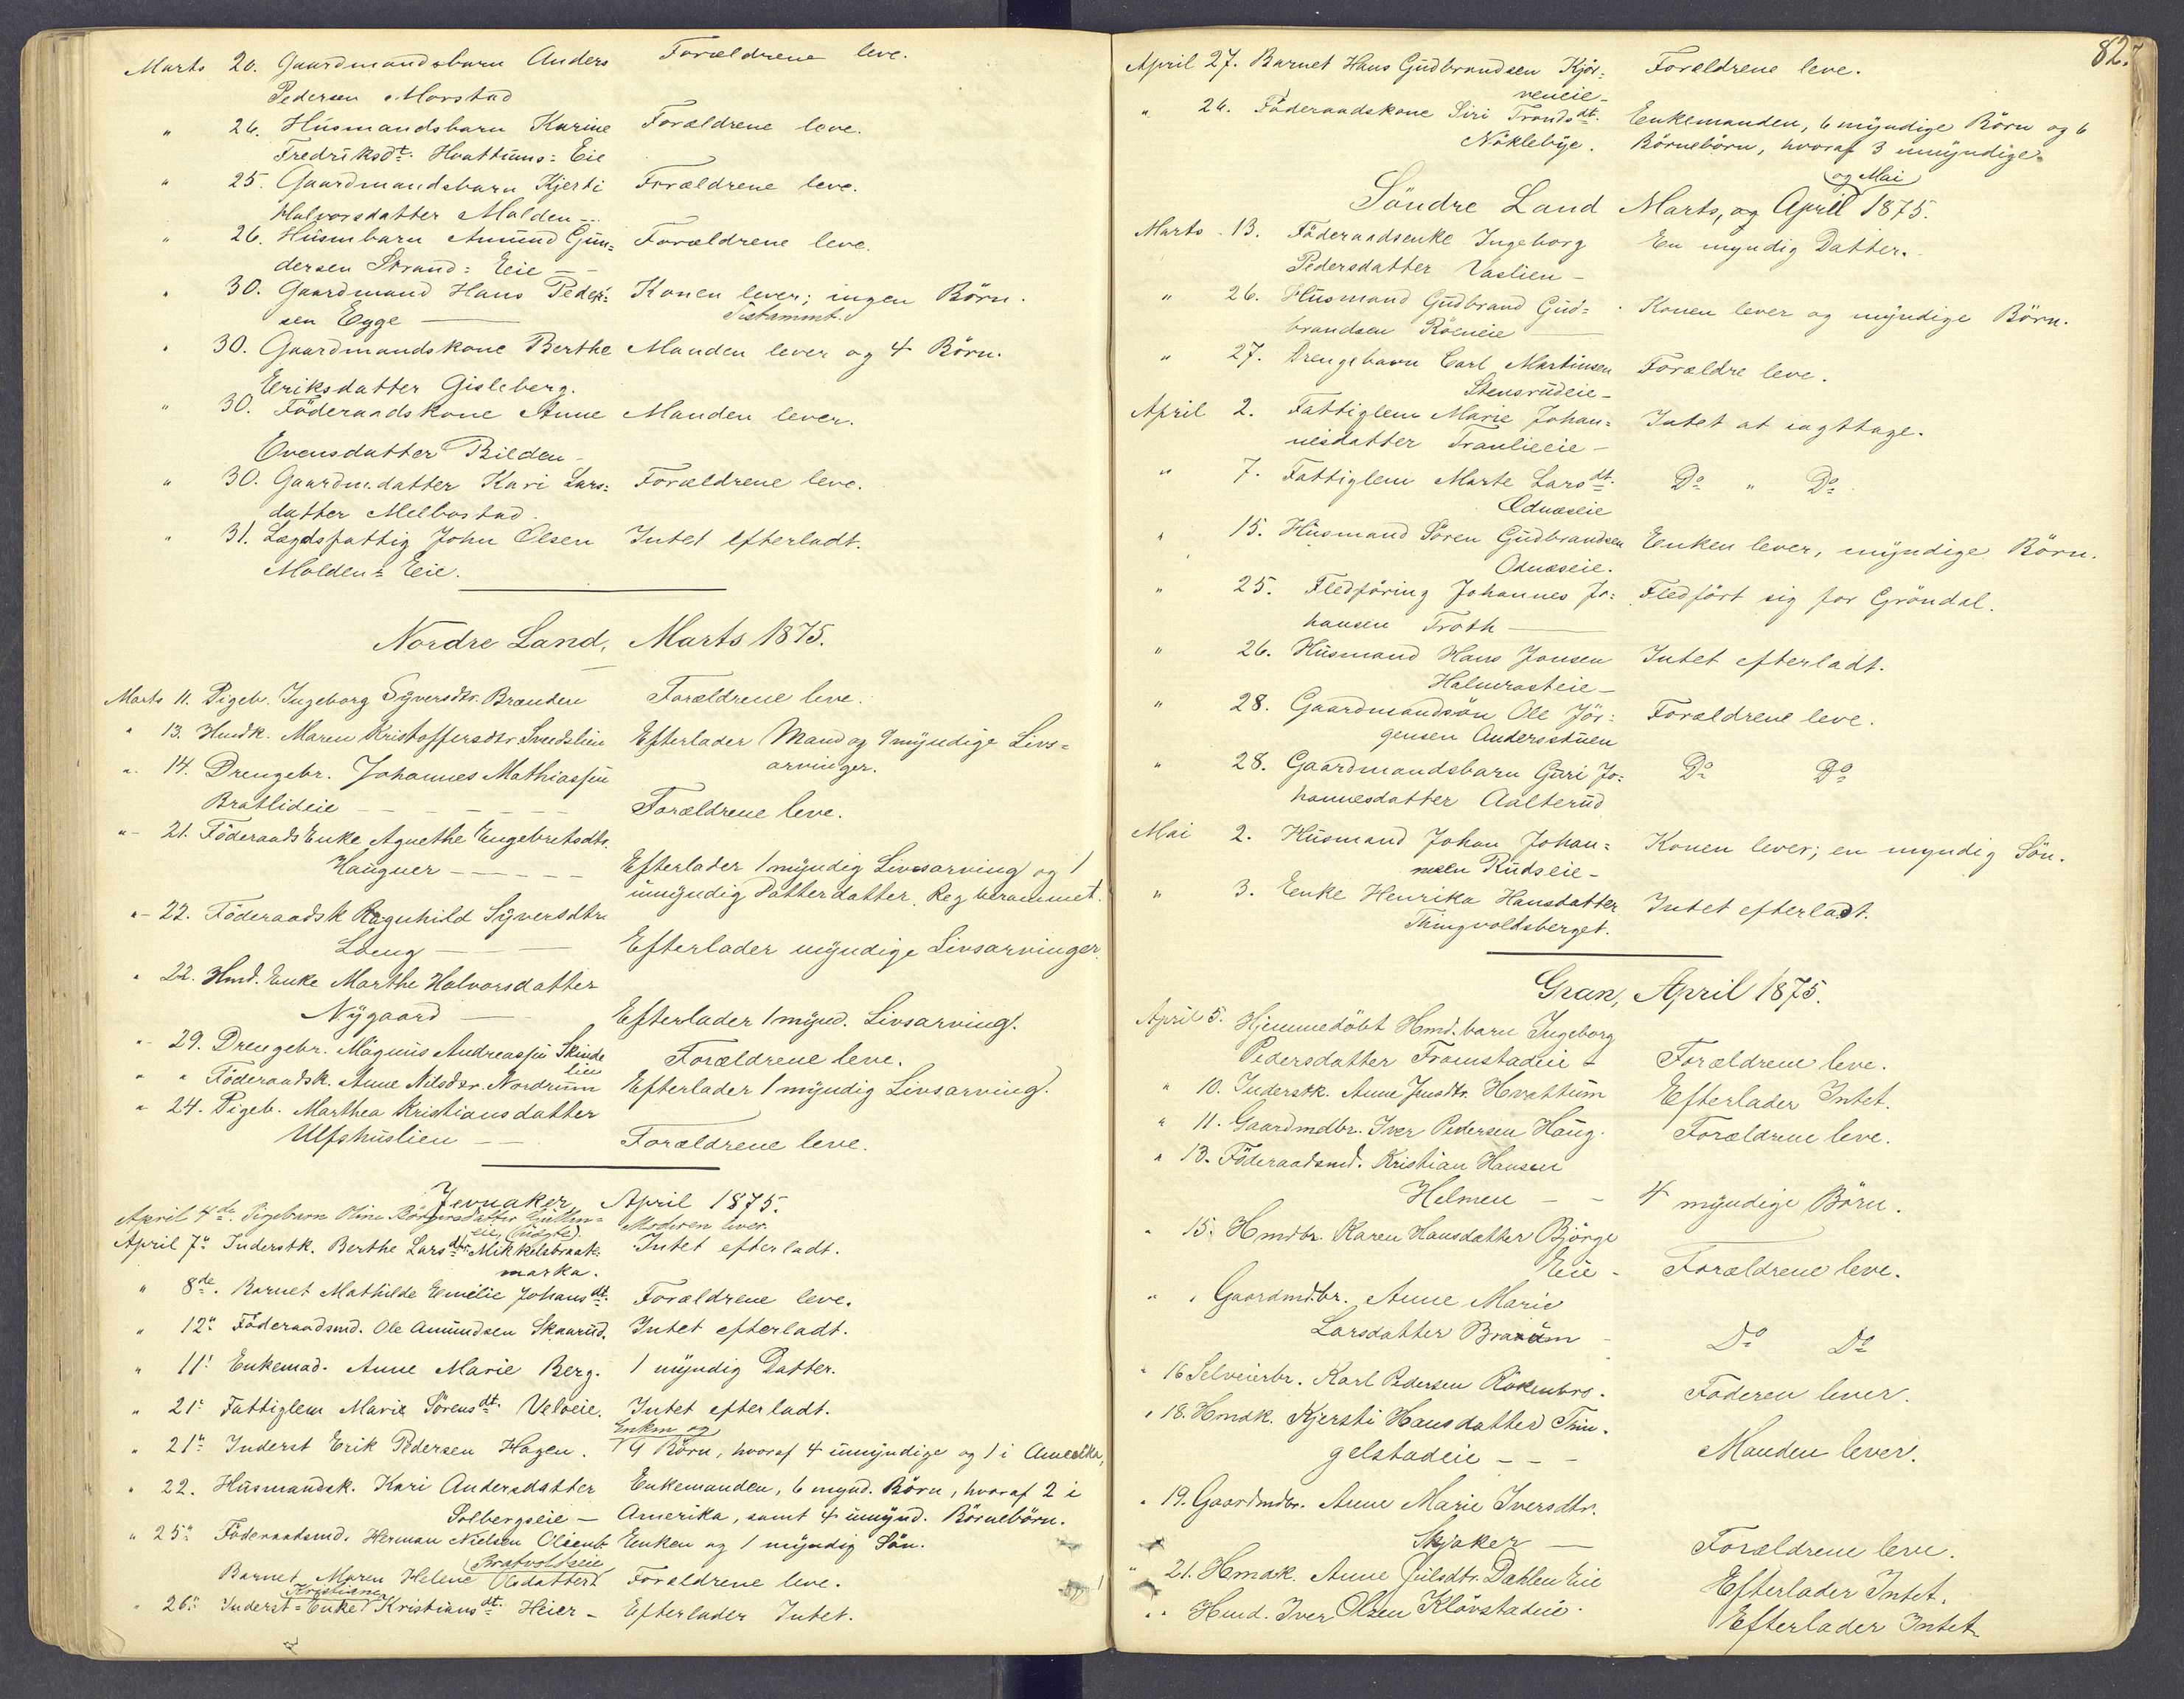 Marts 20. Gaardmandsbarn Anders Forældrene leve.
Pedersen Morstad
" 26. Husmandsbarn Karine Forældrene leve.
Fredriksdt. Hvattums=Eie
" 25. Gaardmandsbarn Kjersti Forældrene leve.
Halvorsdatter Molden
" 26. Husmbarn Amund Gun= Forældrene leve.
dersen Strand=Eie
" 30. Gaardmand Hans Peder= Konen lever; ingen Börn.
sen Egge Testammt.
" 30. Gaardmandskone Berthe Manden lever og 4 Börn.
Eriksdatter Gisleberg.
" 30. Föderaadskone Anne Manden lever.
Evensdatter Bilden
" 30. Gaardm.datter Kari Lars= Forældrene leve.
datter Melbostad.
" 31. Lægdsfattig John Olsen Intet efterladt.
Molden=Eie.
Nordre Land, Marts 1875.
Marts 11. Pigeb. Ingeborg Syversdtr. Brænden Forældrene leve.
" 13. Hmdk. Maren Kristoffersdtr. Smedslien Efterlader Mand og 9 myndige Livs=
arvinger.
" 14. Drengebr. Johannes Mathiassen
Bratlideie Forældrene leve.
" 21. Föderaads Enke Agnethe Engebretsdtr.
Haugner Efterlader 1 myndig Livsarving og 1
umyndig Datterdatter. Reg berammet.
" 22. Föderaadsk Ragnhild Syversdtr.
Loeng Efterlader myndige Livsarvinger.
" 22. Hmd. Enke Marthe Halvorsdatter
Nygaard Efterlader 1 mynd. Livsarving.
" 29. Drengebr. Magnus Andreassen Skinde
lien Forældrene leve.
" " Föderaadsk. Anne Nilsdtr. Nordrum Efterlader 1 myndig Livsarving.
" 24. Pigeb. Marthea Kristiansdatter
Ulfshuslien Forældrene leve.
Jevnaker, April 1875.
April 4de. Pigebarn Oline Moderen lever.
eie (uægte)
April 7. Inderstk. Berthe Larsdtr. Mikkelsbraate= Intet efterladt.
marka.
" 8de. Barnet Mathilde Emilie Johansdt. Forældrene leve.
" 12. Föderaadsmd. Ole Amundsen Skaarud. Intet efterladt.
" 11. Enkemad. Anne Marie Berg. 1 myndig Datter.
" 21. Fattiglem Marie Sörensdt. Veloeie. Intet efterladt.
Enkm. og
" 21. Inderst Erik Pedersen Hagen. 9 Börn, hvoraf 4 umyndige og 1 i Amerika,
" 22. Husmandsk. Kari Andersdatter Enkemanden, 6 mynd. Börn, hvoraf 2 i
Solbergseie Amerika, samt 4 umynd. Börnebörn.
" 25. Föderaadsmd. Herman Nielsen Enken og 1 myndig Sön.
Bratvoldseie
Barnet Maren Helene Olsdatter Forældrene leve.
Kristiane
" 26. Inderst=Enke Kristiansdt. Heier Efterlader Intet.
82.
April 27. Barnet Hans Gudbrandsen Kjör= Forældrene leve.
veneie
" 26. Föderaadskone Siri Trondsdt. Enkemanden, 6 myndige Börn og 6
Nöklebye. Börnebörn, hvoraf 3 umyndige
og Mai
Söndre Land Marts, og April 1875.
Marts 13. Föderaadsenke Ingeborg En myndig Datter.
Pedersdatter Vaslien
" 26. Husmand Gudbrand Gud= Konen lever og myndige Börn.
brandsen Röeneie
" 27. Drengebarn Carl Martinsen Forældre leve.
Stensrudeie
April 2. Fattiglem Marie Johan= Intet at iagttage.
nesdatter Tranlieeie
" 7. Fattiglem Marte Larsdt. Do " Do
Odnæseie
" 15. Husmand Sören Gudbrandsen Enken lever, myndige Börn.
Odnæseie.
" 25. Fledföring Johannes Jo= Fledfört sig for Gröndal.
hansen Troth
" 26. Husmand Hans Jonsen Intet efterladt.
Halmrasteie
" 28. Gaardmandsön Ole Jör= Forældrene leve.
gensen Andersstuen
" 28. Gaardmandsbarn Guri Jo= Do Do
hannesdatter Aalterud
Mai 2. Husmand Johan Johan= Konen lever; en myndig Sön.
nesen Rudseie
" 3. Enke Henrika Hansdatter Intet efterladt.
Thingvoldsberget.
Gran, April 1875.
April 5. Hjemmedöbt Hmd.barn Ingeborg
Pedersdatter Framstadeie Forældrene leve.
" 10. Inderstk. Anne Jensdtr. Hvattum Efterlader Intet.
" 11. Gaardmdbr. Iver Pedersen Haug. Forældrene leve.
" 13. Föderaadsmd. Kristian Hansen
Helmen 4 myndige Börn.
" 15. Hmdbr. Karen Hansdatter Björge
Eie Forældrene leve.
" " Gaardmdbr. Anne Marie
Larsdatter Do Do
" 16 Selveierbr. Karl Pedersen Faderen lever.
" 18. Hmdk. Kjersti Hansdatter Thin=
gelstadeie Manden lever.
" 19. Gaardmdbr. Anne Marie Iversdtr.
Skjaker Forældrene leve.
" 21. Hmdk. Anne Julsdtr. Dahlen Eie Efterlader Intet.
" " Hmd. Iver Olsen Klövstadeie. Efterlader Intet